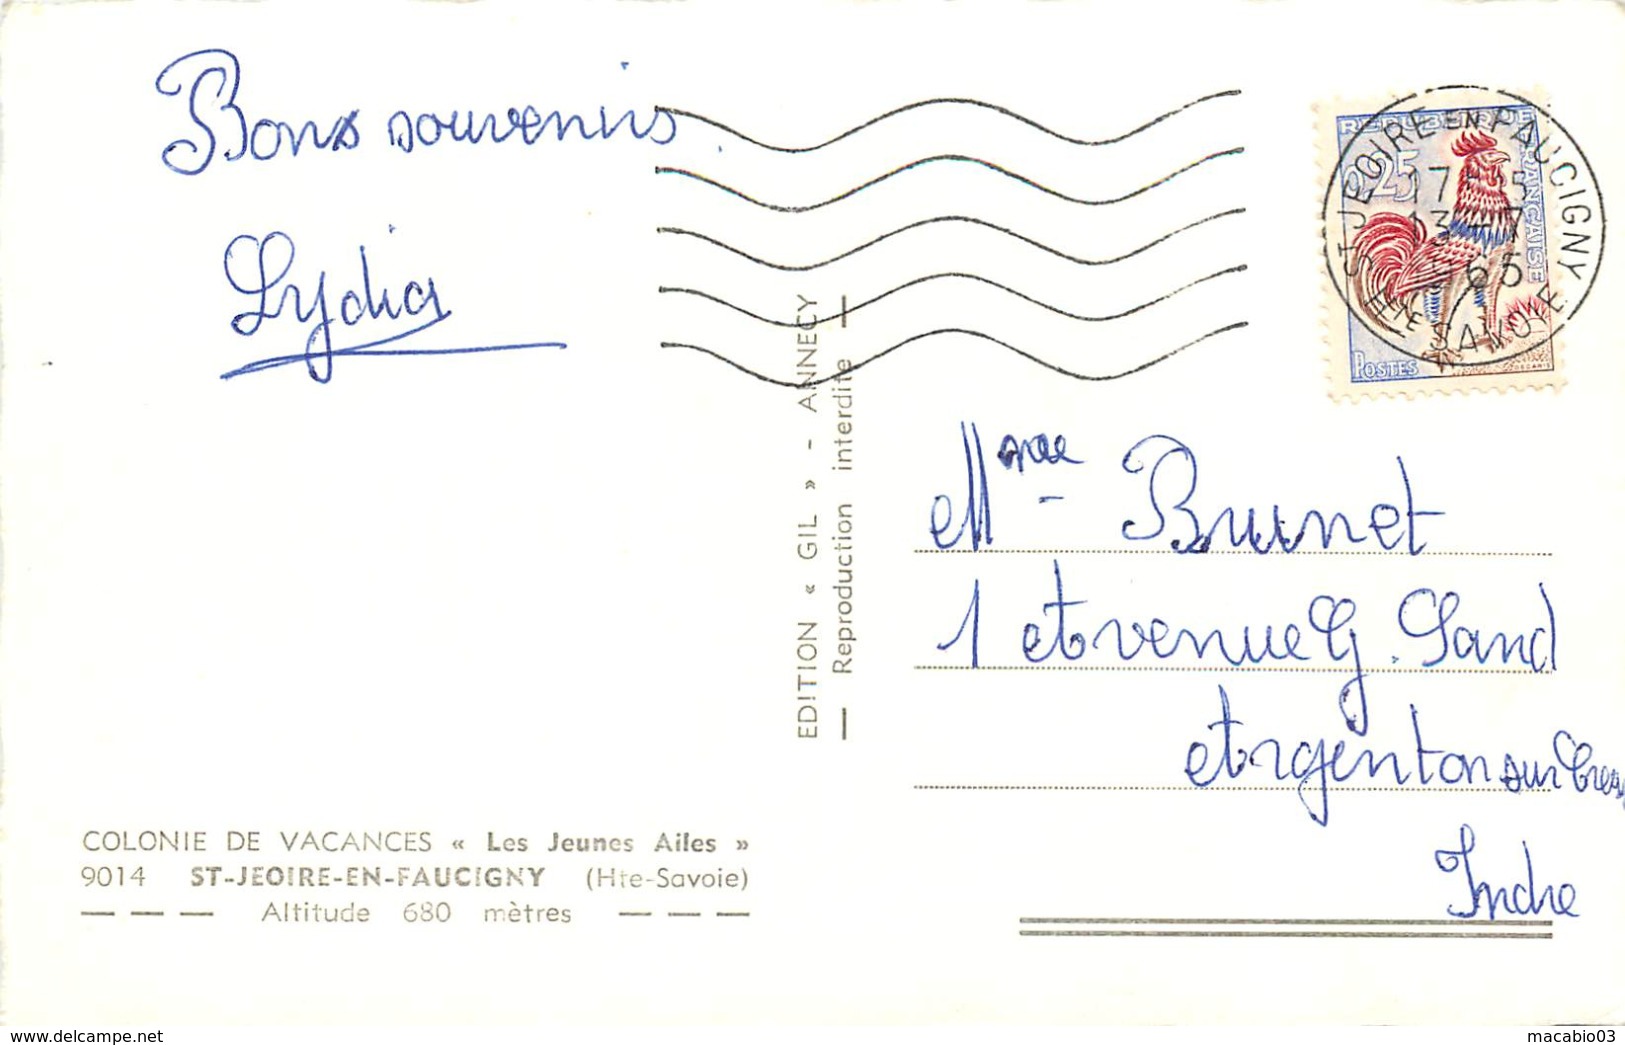 Bons souvenirs.
Lydia
EDITION « GIL » - ANNECY
— Reproduction interdite —
REPUBLIQUE FRANÇAISE
0,25
POSTES
ST JEOIRE EN FAUCIGNY
13 - 7
65
HTE SAVOIE
Mme Brunet
1 Avenue G. Sand
Argenton sur Creuse
Indre
COLONIE DE VACANCES « Les Jeunes Ailes »
9014 ST-JEOIRE-EN-FAUCIGNY (Hte-Savoie)
— — — Altitude 680 mètres — — —
https://www.delcampe.net
macabio03